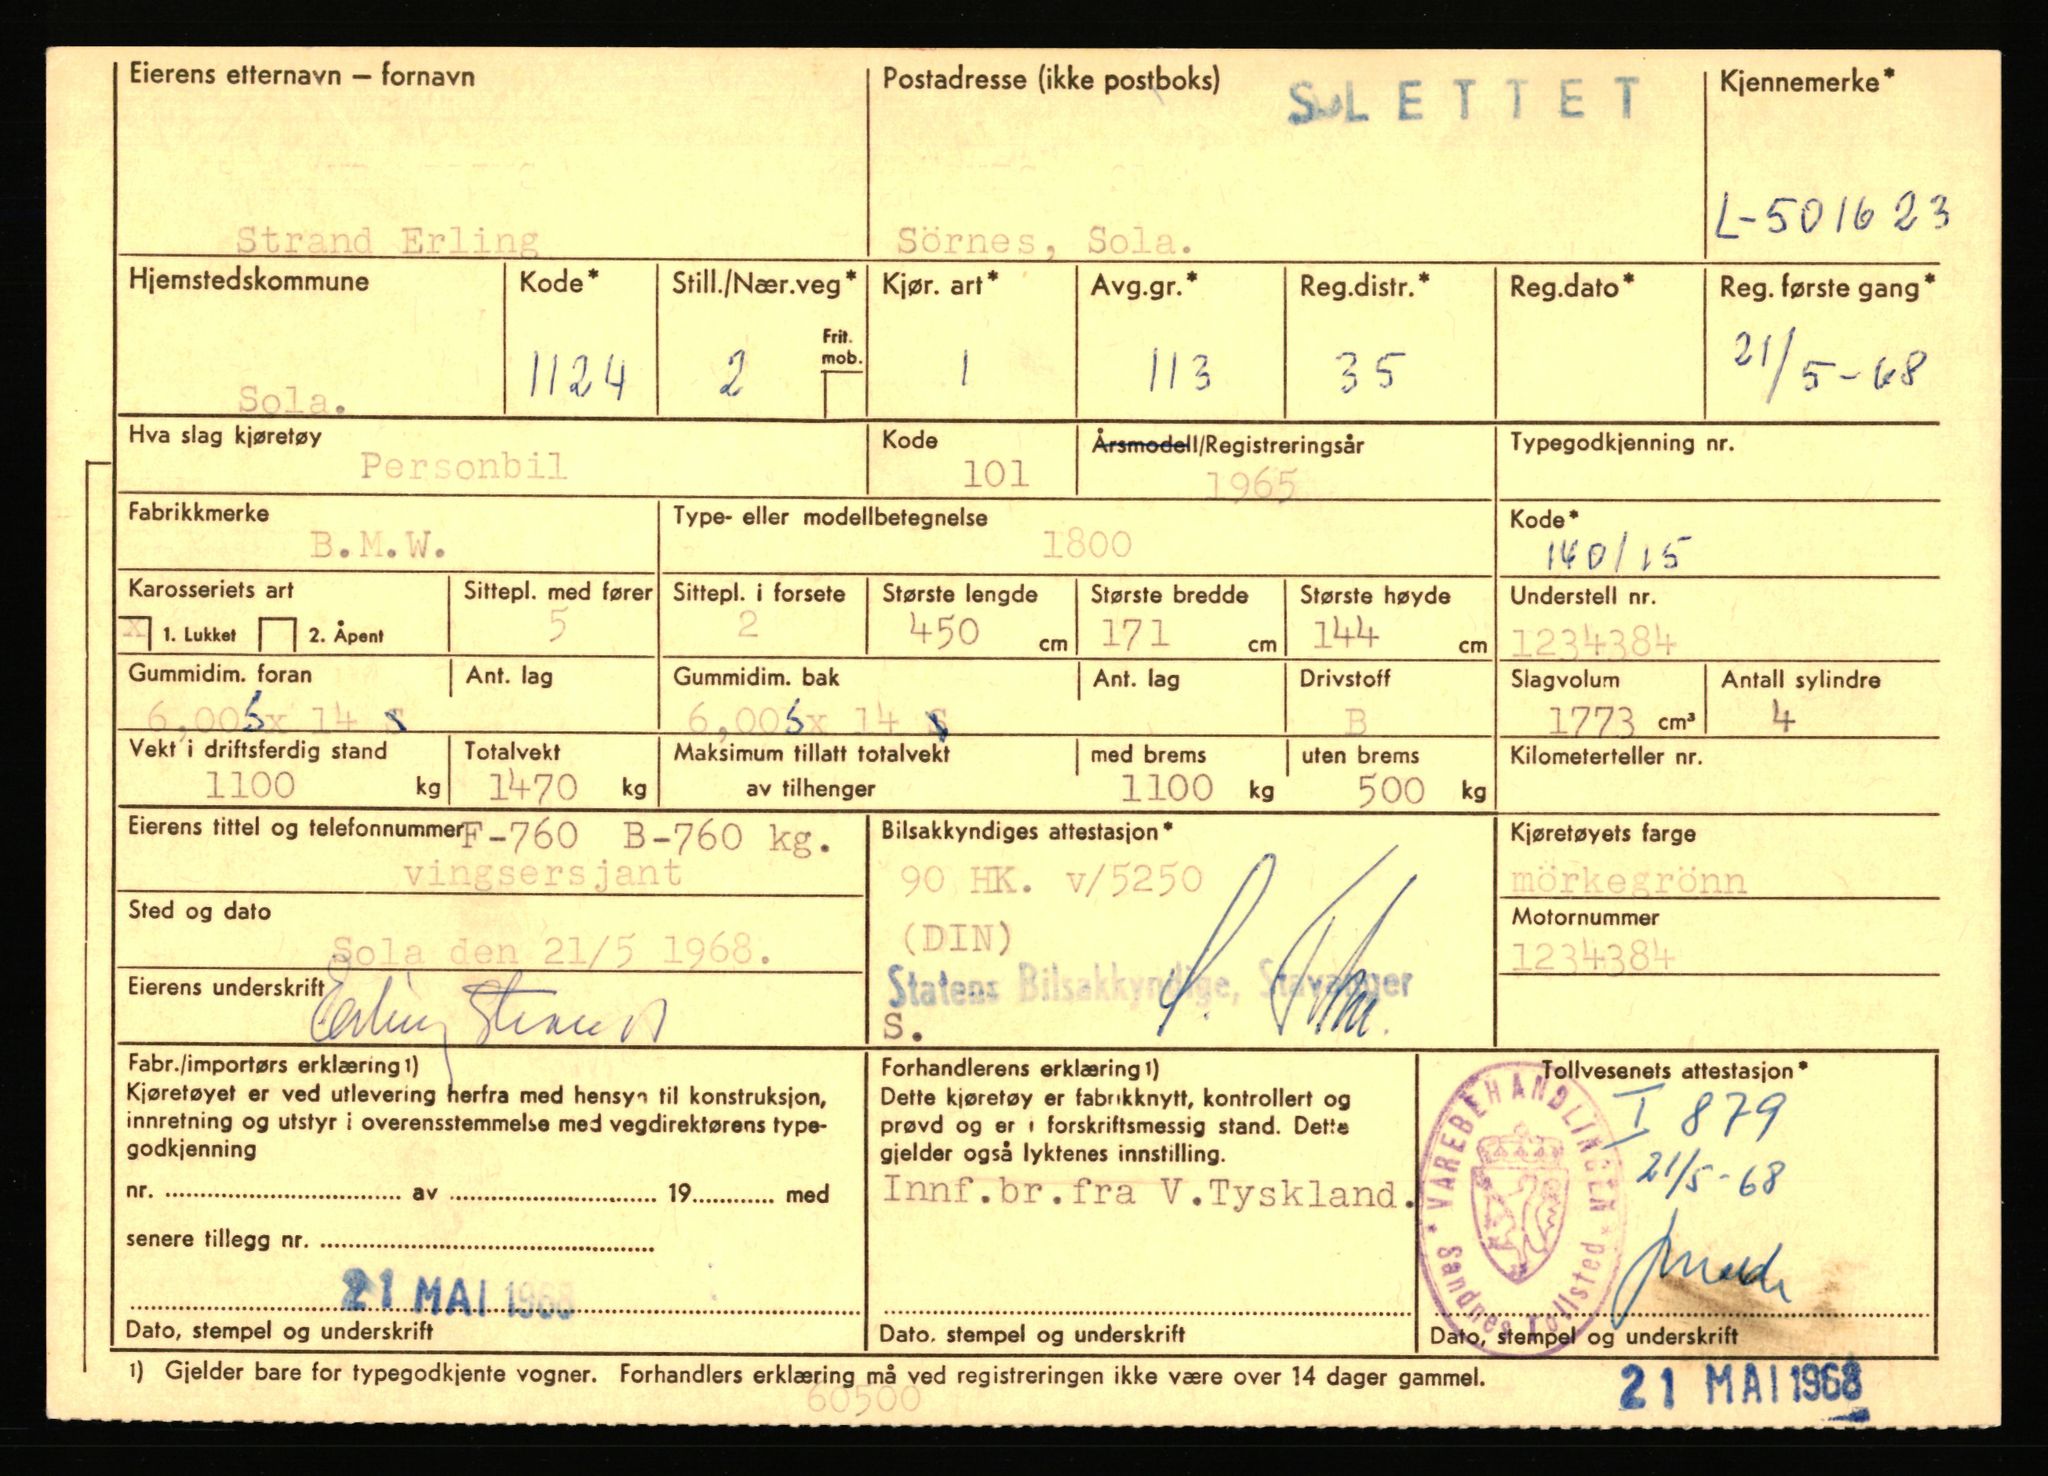 Eierens etternavn — fornavn Postadresse (ikke postboks) SLETTET Kjennemerke*
Strand Erling Sörnes, Sola. L-501623
Hjemstedskommune Kode* Still./Nær.veg* Kjør. art* Avg.gr.* Reg.distr.* Reg.dato* Reg. første gang*
Frit. mob.
Sola. 1124 2 1 113 35 21/5-68
Hva slag kjøretøy Kode Årsmodell/Registreringsår Typegodkjenning nr.
Personbil 101 1965
Fabrikkmerke Type- eller modellbetegnelse Kode*
B.M.W. 1800 140/15
Karosseriets art Sittepl. med fører Sittepl. i forsete Største lengde Største bredde Største høyde Understell nr.
x 1. Lukket 2. Åpent 5 2 450 cm 171 cm 144 cm 1234384
Gummidim. foran Ant. lag Gummidim. bak Ant. lag Drivstoff Slagvolum Antall sylindre
6,00Sx 14 S 6,00Sx 14 S B 1773 cm³ 4
Vekt i driftsferdig stand Totalvekt Maksimum tillatt totalvekt med brems uten brems Kilometerteller nr.
1100 kg 1470 kg av tilhenger 1100 kg 500 kg
Eierens tittel og telefonnummer F-760 B-760 kg. Bilsakkyndiges attestasjon* Kjøretøyets farge
vingsersjant 90 HK. v/5250 mörkegrönn
Sted og dato (DIN) Motornummer
Sola den 21/5 1968. 1234384
Eierens underskrift Erling Strand Statens Bilsakkyndige, Stavanger
S.
Fabr./importørs erklæring 1) Forhandlerens erklæring 1) Tollvesenets attestasjon*
Kjøretøyet er ved utlevering herfra med hensyn til konstruksjon, Dette kjøretøy er fabrikknytt, kontrollert og I 879
innretning og utstyr i overensstemmelse med vegdirektørens type- prøvd og er i forskriftsmessig stand. Dette
godkjenning gjelder også lyktenes innstilling. 21/5-68
nr. av 19 med Innf.br.fra V.Tyskland.
senere tillegg nr. * VAREBEHANDLINGEN * Sandnes Tollsted
21 MAI 1968
Dato, stempel og underskrift Dato, stempel og underskrift Dato, stempel og underskrift
1) Gjelder bare for typegodkjente vogner. Forhandlers erklæring må ved registreringen ikke være over 14 dager gammel.
60500 21 MAI 1968